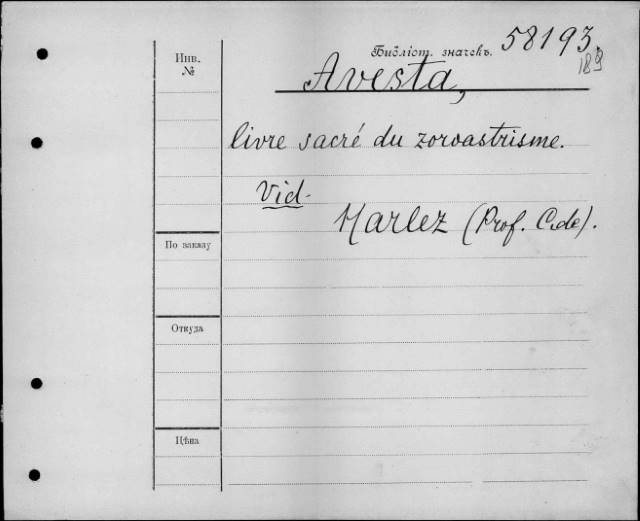 Инв. №
Библіот. значекъ. 58193.
189
Avesta,
livre sacré du zoroastrisme.
Vid.
Harlez (Prof. C. de).
По заказу
Откуда
Цѣна